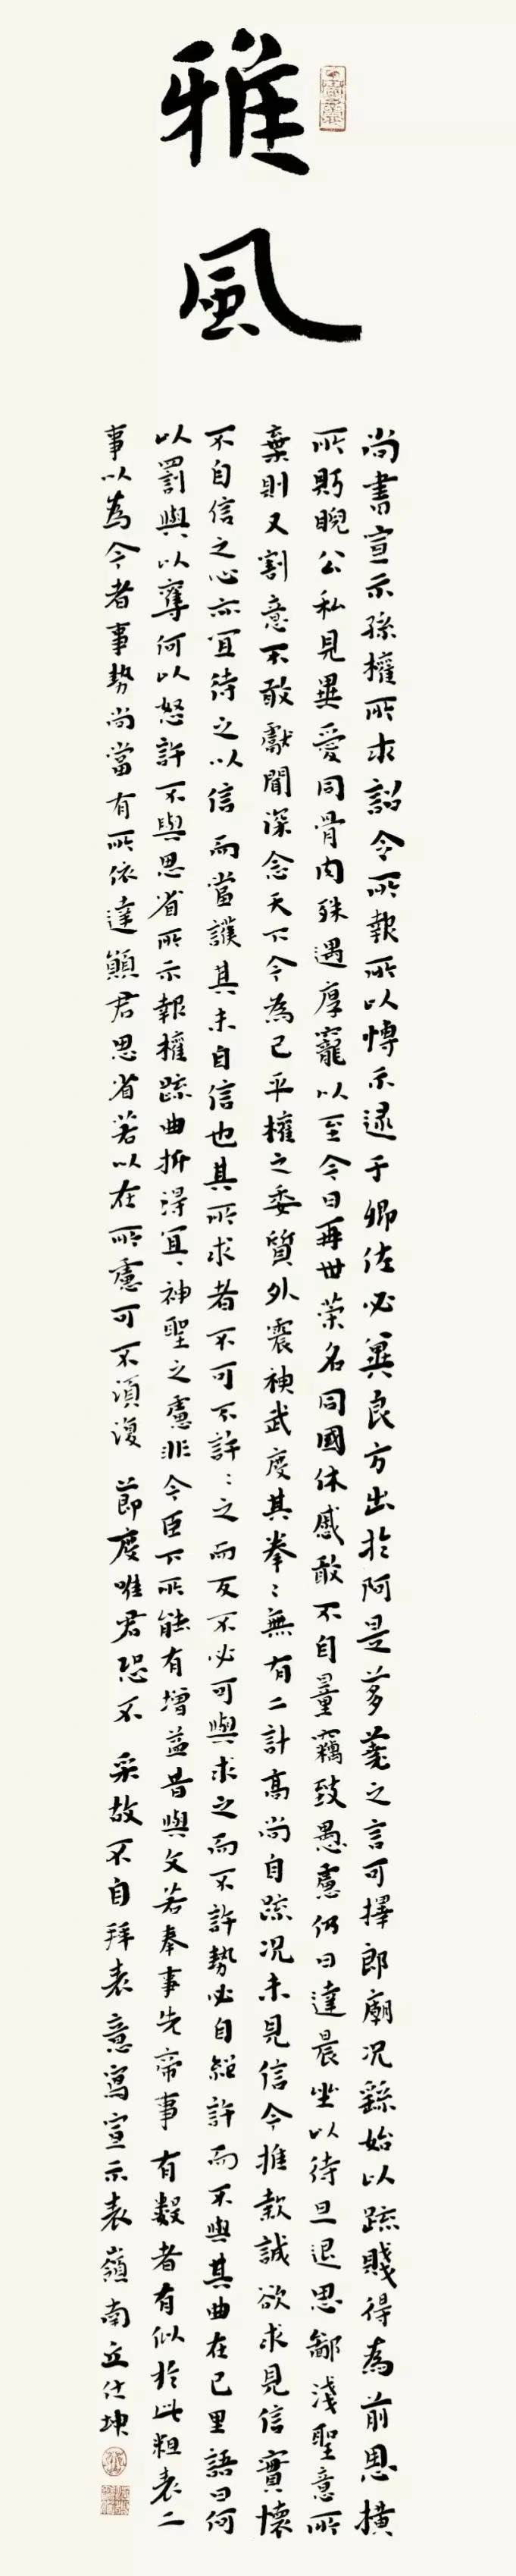 雅風
尚書宣示孫權所求詔令所報所以博示逮于卿佐必冀良方出於阿是芻蕘之言可擇郎廟況繇始以疏賤得為前恩橫
所眄睨公私見異愛同骨肉殊遇厚寵以至今日再世榮名同國休慼敢不自量竊致愚慮仍日達晨坐以待旦退思鄙淺聖意所
棄則又割意不敢獻聞深念天下今為已平權之委質外震神武度其拳〻無有二計高尚自疏況未見信今推款誠欲求見信實懷
不自信之心亦宜待之以信而當護其未自信也其所求者不可不許〻之而反不必可與求之而不許勢必自絕許而不與其曲在己里語曰何
以罰與以奪何以怒許不與思省所示報權疏曲折得宜〻神聖之慮非今臣下所能有增益昔與文若奉事先帝事有數者有似於此粗表二
事以為今者事勢尚當有所依違願君思省若以在所慮可不須復節度唯君恐不采故不自拜表意寫宣示表嶺南丘仕坤